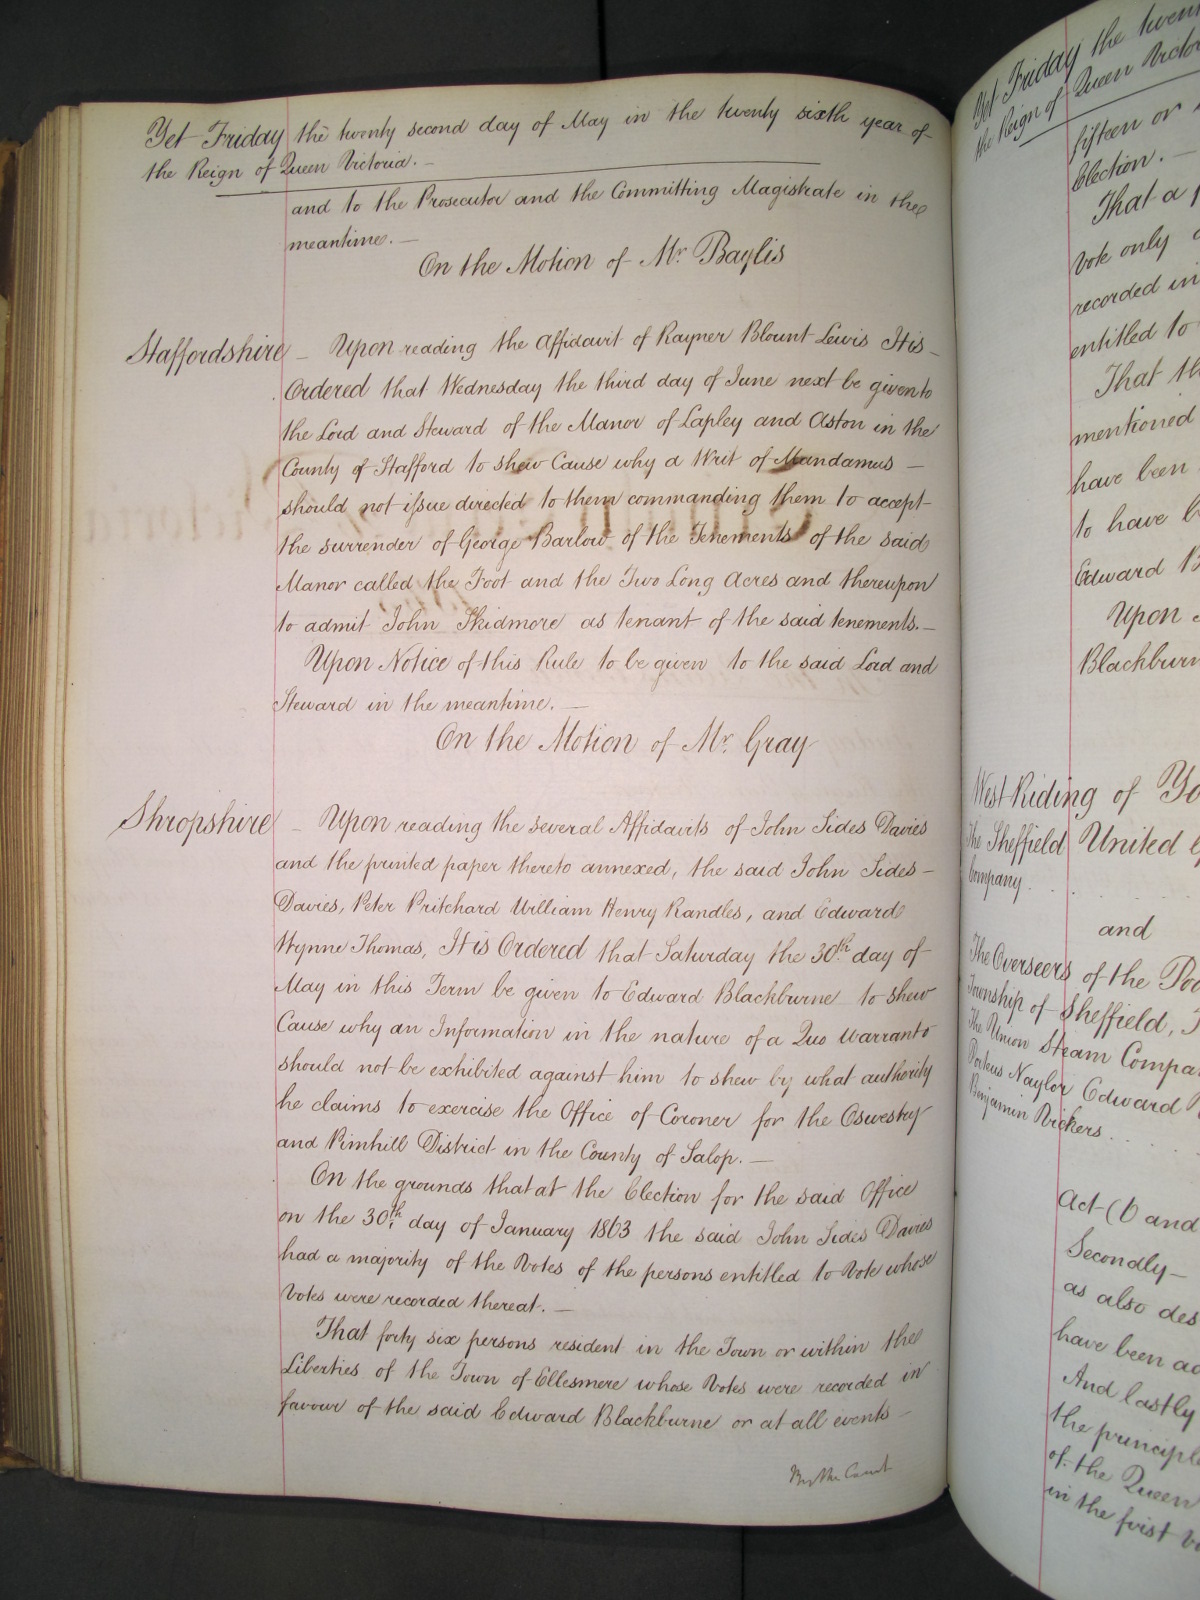 Yet Friday the twenty second day of May in the twenty sixth year of
the Reign of Queen Victoria. —
and to the Prosecutor and the Committing Magistrate in the
meantime. —
On the Motion of Mr. Baylis
Staffordshire — Upon reading the Affidavit of Rayner Blount Lewis It is —
Ordered that Wednesday the third day of June next be given to
the Lord and Steward of the Manor of Lapley and Aston in the
County of Stafford to shew Cause why a Writ of Mandamus —
should not issue directed to them commanding them to accept
the surrender of George Barlow of the Tenements of the said
Manor called the Foot and the Two Long Acres and thereupon
to admit John Skidmore as tenant of the said tenements. —
Upon Notice of this Rule to be given to the said Lord and
Steward in the meantime. —
On the Motion of Mr. Gray
Shropshire — Upon reading the several Affidavits of John Sides Davies
and the printed paper thereto annexed, the said John Sides —
Davies, Peter Pritchard William Henry Randles, and Edward
Wynne Thomas, It is Ordered that Saturday the 30th day of
May in this Term be given to Edward Blackburne to shew
Cause why an Information in the nature of a Quo Warranto
should not be exhibited against him to shew by what authority
he claims to exercise the Office of Coroner for the Oswestry
and Pimhill District in the County of Salop. —
On the grounds that at the Election for the said Office
on the 30th day of January 1863 the said John Sides Davies
had a majority of the Votes of the persons entitled to Vote whose
Votes were recorded thereat. —
That forty six persons resident in the Town or within the
Liberties of the Town of Ellesmere whose Votes were recorded in
favour of the said Edward Blackburne or at all events —
By the Court
Yet Friday the
the Reign of Queen
fifteen or
Election. —
That a
Vote only
recorded in
entitled to
That
mentioned
have been
to have
Edward
Upon
West Riding of
The Sheffield United
Company
and
The Overseers of the
Township of Sheffield,
The Union Steam
Naylor Edward
Benjamin Vickers
Act (6 and
Secondly —
as also
have been
And lastly
the
of the Queen
in the first